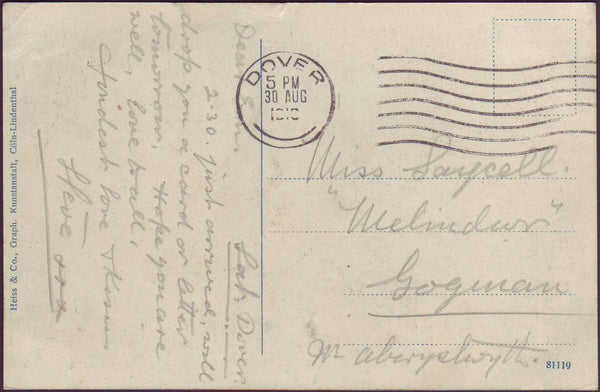 Sat. Dover.
Dear
2-30. Just arrived, will
drop you a card or letter
tomorrow. Hope you are
well, love to all,
Fondest love & kisses
Steve xxx
Heiss & Co., Graph. Kunstanstalt, Cöln-Lindenthal
DOVER
5 PM
30 AUG
Miss Saycell.
"Melindwr"
Goginan
Nr Aberystwyth.
81119